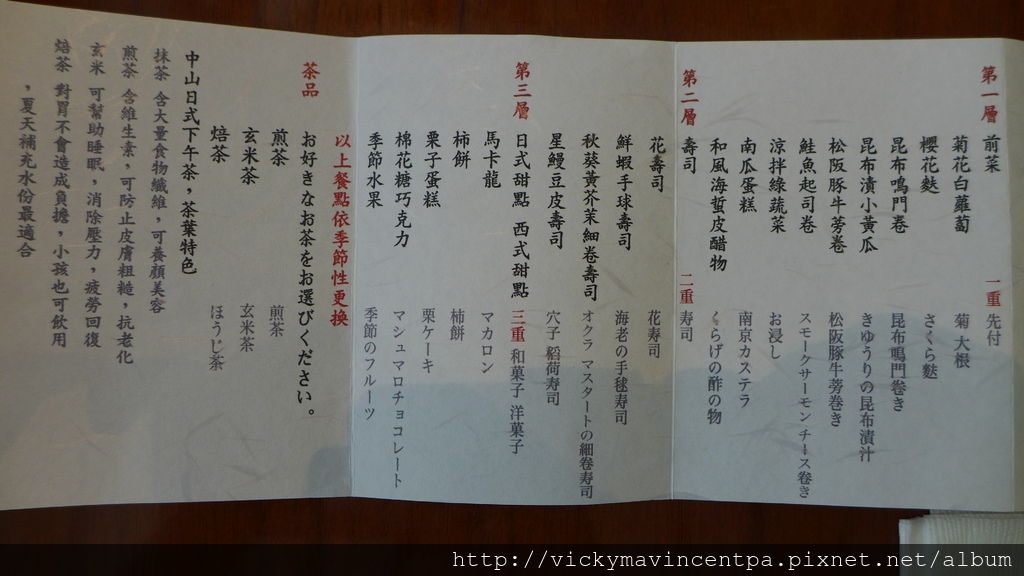 第一層 前菜 一重 先付
菊花白蘿蔔 菊 大根
櫻花麩 さくら麩
昆布鳴門卷 昆布鳴門巻き
昆布漬小黃瓜 きゆうりの昆布漬汁
松阪豚牛蒡卷 松阪豚牛蒡巻き
鮭魚起司卷 スモークサーモン チース巻き
涼拌綠蔬菜 お浸し
南瓜蛋糕 南京カステラ
和風海蜇皮醋物 くらげの酢の物
第二層 壽司 二重 寿司
花壽司 花寿司
鮮蝦手球壽司 海老の手毬寿司
秋葵黃芥茉細卷壽司 オクラ マスタートの細卷寿司
星鰻豆皮壽司 穴子 稻荷寿司
第三層 日式甜點 西式甜點 三重 和菓子 洋菓子
馬卡龍 マカロン
柿餅 柿餅
栗子蛋糕 栗ケーキ
棉花糖巧克力 マシュマロチョコレート
季節水果 季節のフルーツ
以上餐點依季節性更換
茶品 お好きなお茶をお選びください。
煎茶 煎茶
玄米茶 玄米茶
焙茶 ほうじ茶
中山日式下午茶，茶葉特色
抹茶 含大量食物纖維，可養顏美容
煎茶 含維生素，可防止皮膚粗糙，抗老化
玄米 可幫助睡眠，消除壓力，疲勞回復
焙茶 對胃不會造成負擔，小孩也可飲用
，夏天補充水份最適合
http://vickymavincentpa.pixnet.net/album